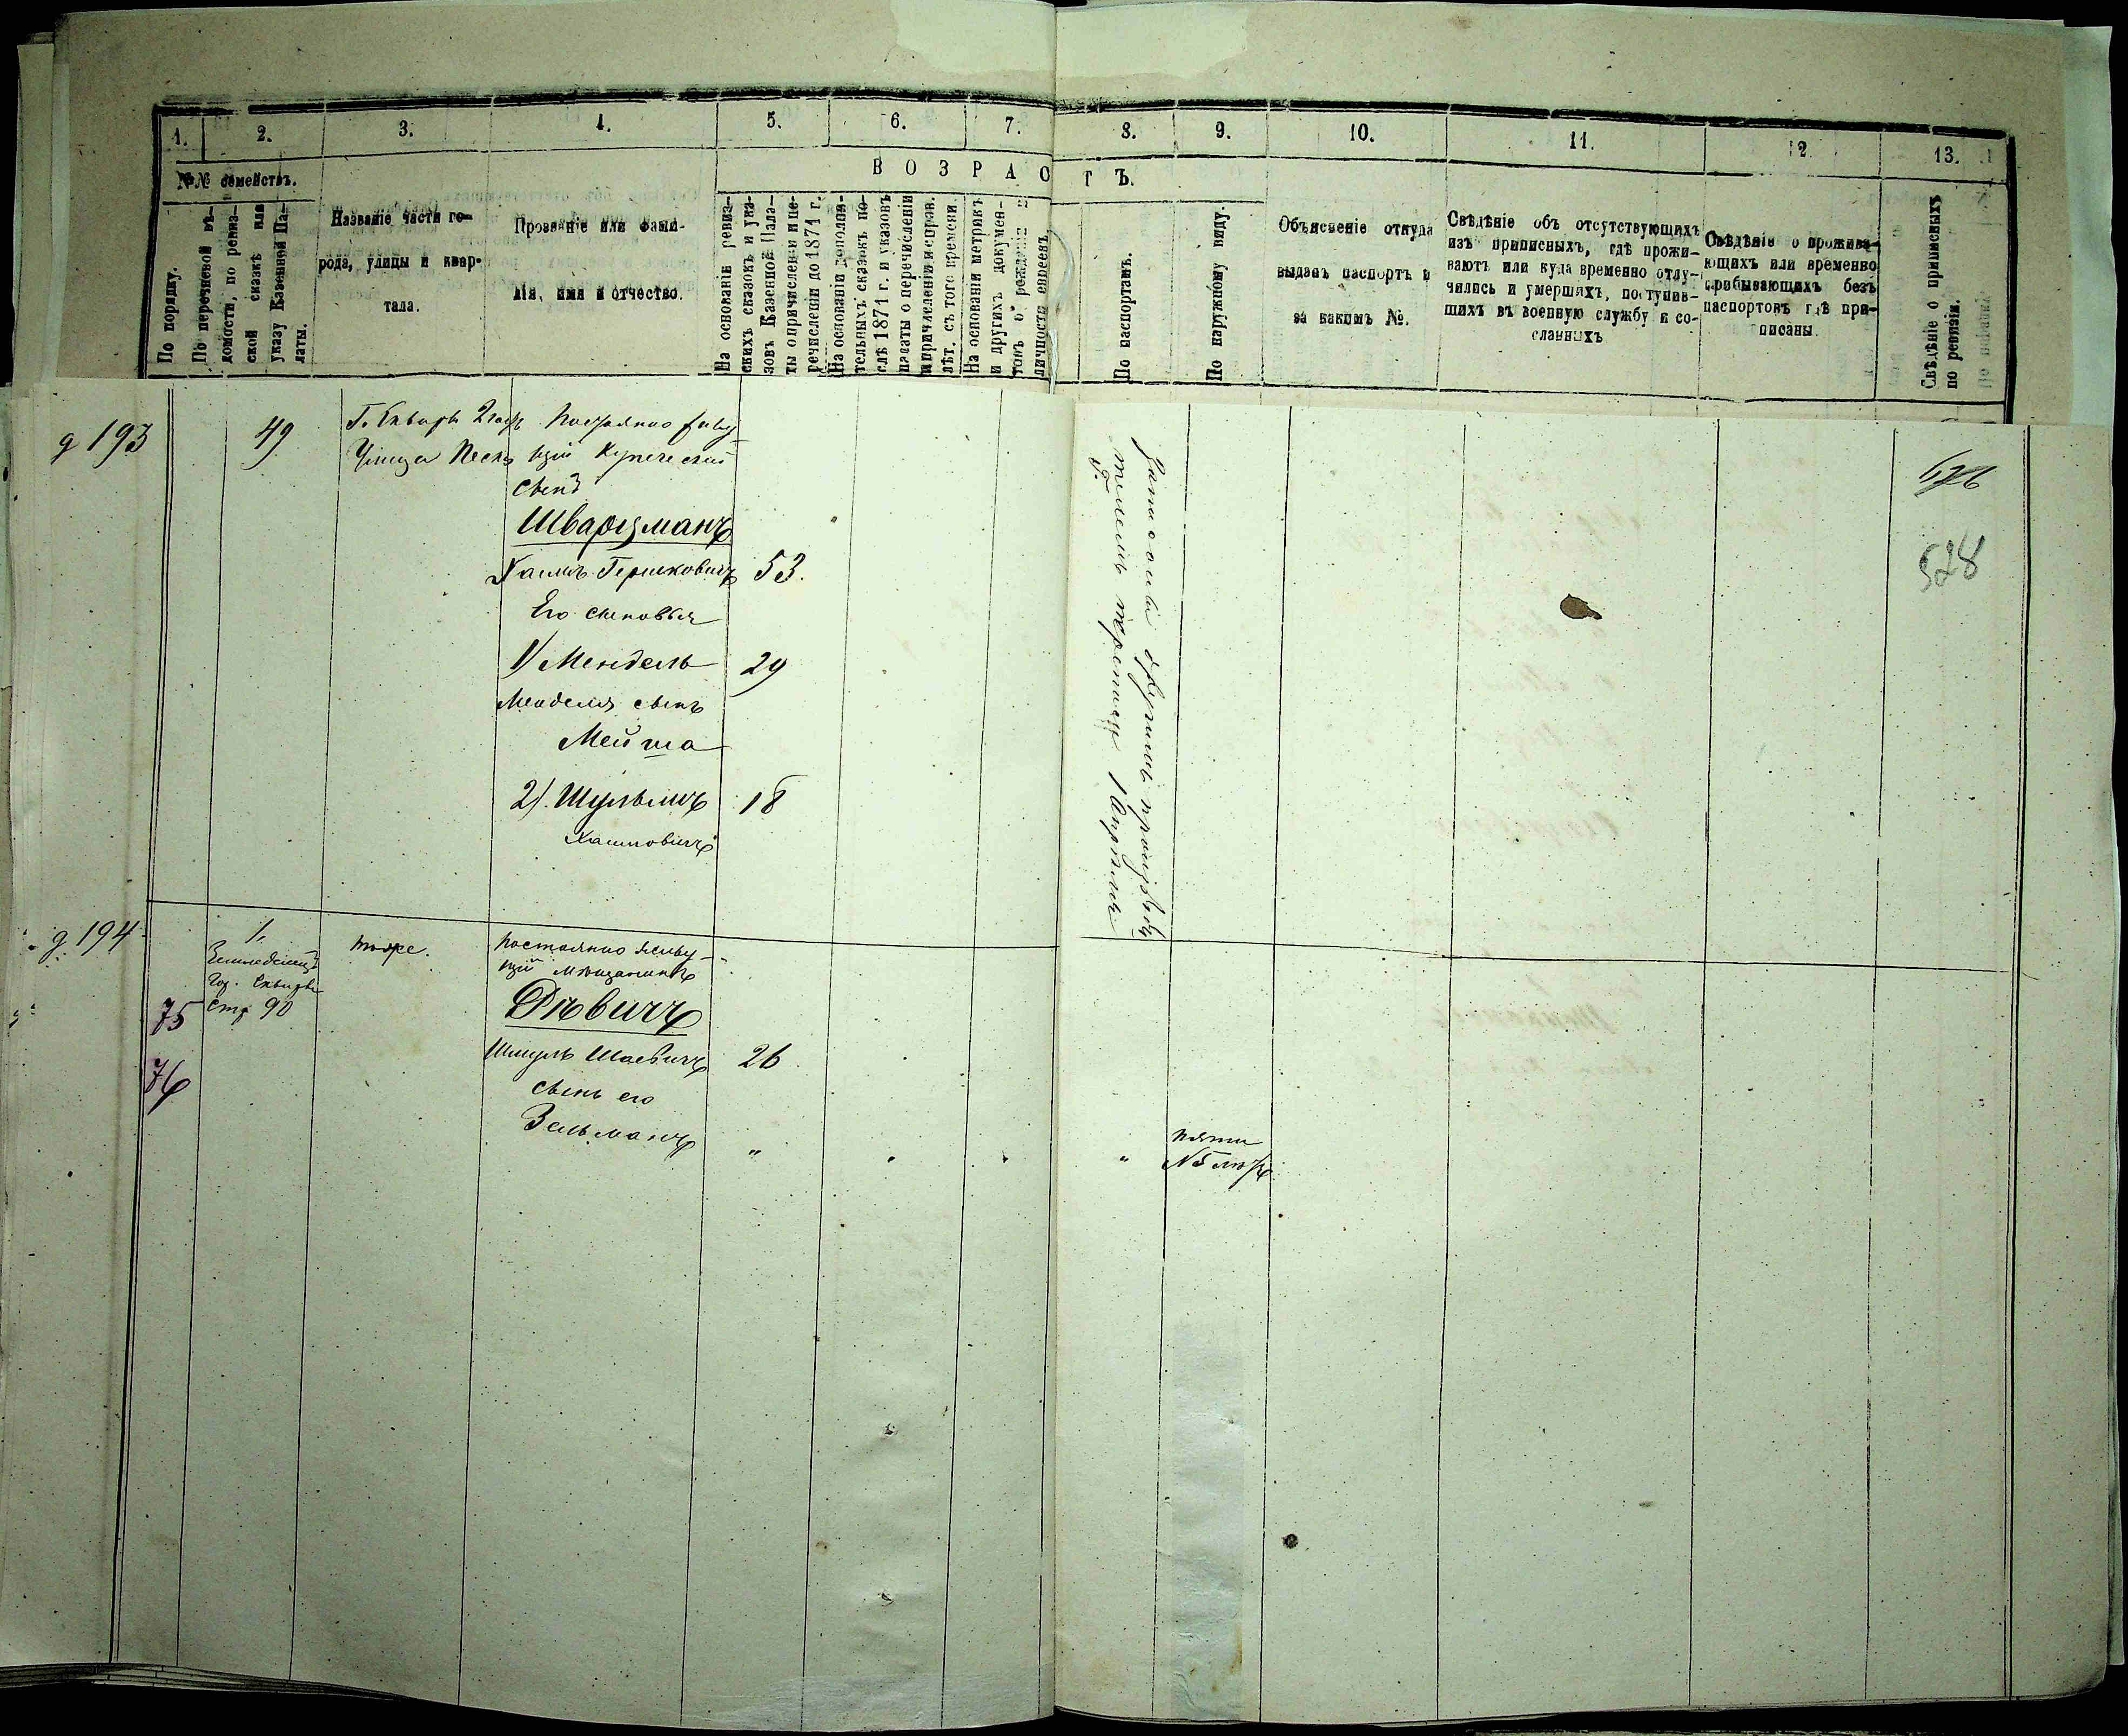 1. 2. 3. 4. 5. 6. 7. 8. 9. 10. 11. 12. 13.
№№ семействъ.
ВОЗРАСТЪ.
По порядку.
По перечневой вѣ-
домости, по ревиз-
ской сказкѣ или
указу Казенной Па-
латы.
Названіе части го-
рода, улицы и квар-
тала.
Прозваніе или фами-
лія, имя и отчество.
На основаніи ревиз-
скихъ сказокъ и ука-
зовъ Казенной Пала-
ты о причисленіи и пе-
речисленіи до 1871 г.
На основаніи дополни-
тельныхъ сказокъ по-
слѣ 1871 г. и указовъ
палаты о перечисленіи
и причисленіи и справ.
лѣт. съ того времени.
На основаніи метрикъ
и другихъ докумен-
товъ о рожденіи и
личности евреевъ.
По паспортамъ.
По наружному виду.
Объясненіе откуда
выданъ паспортъ и
за какимъ №.
Свѣдѣніе объ отсутствующихъ
изъ приписныхъ, гдѣ прожи-
ваютъ или куда временно отлу-
чились и умершихъ, поступив-
шихъ въ военную службу и со-
сланныхъ
Свѣдѣніе о прожива-
ющихъ или временно
прибывающихъ безъ
паспортовъ гдѣ при-
писаны.
Свѣдѣніе о приписныхъ
по ревизіи.
д 193
49
Г. Сквиръ 2 час
Улица Пески
Постоянно живу-
щій Купеческій
сынъ
Шварцманъ
Хаимъ Гершковичъ 53.
Его сыновья
1) Мендель 29
Менделя сынъ
Мейша
2). Шульимъ 18
Хаимовичъ
528
д. 194
1.
Гор. Сквиры
стр 90
75
76
тоже.
постоянно живу-
щій мѣщанинъ
Дѣвичъ
Шмуль Шаевичъ 26
сынъ его
Зельманъ " "
пяти
№ 5 лѣтъ